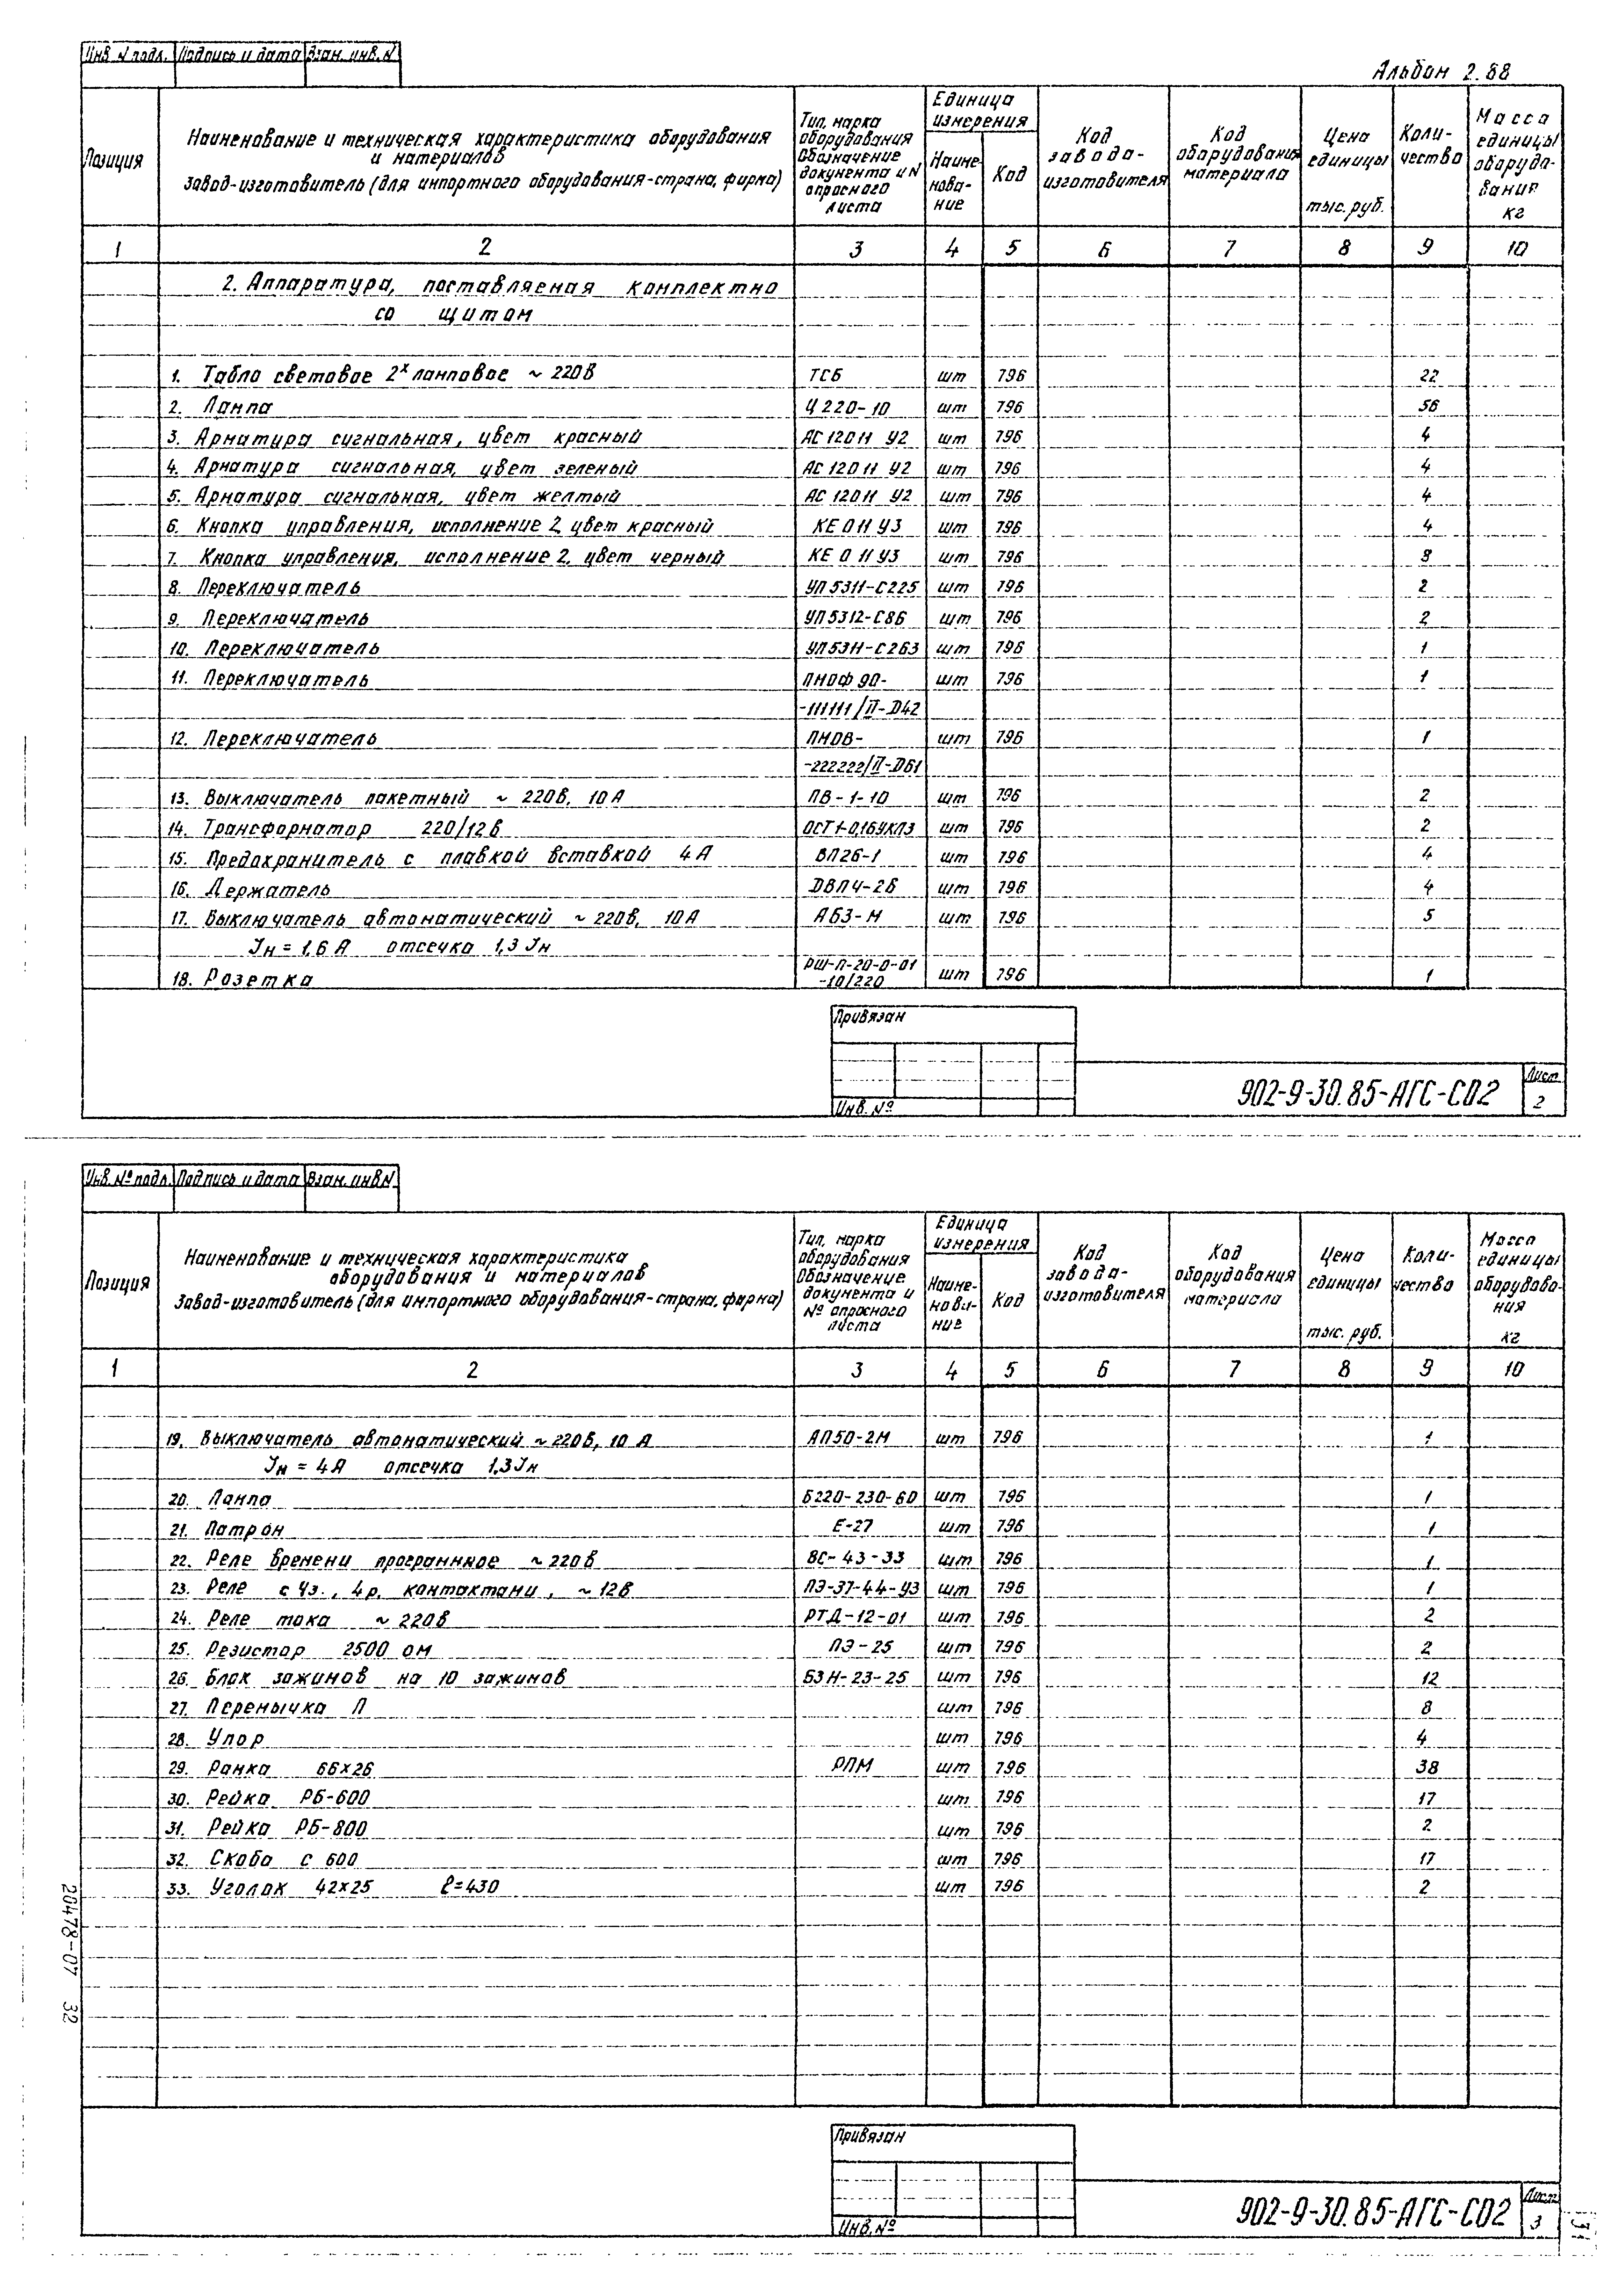 Инв. N подл. Подпись и дата Взам. инв. N
Альбом 2.88
Позиция
Наименование и техническая характеристика оборудования
и материалов
Завод-изготовитель (для импортного оборудования-страна, фирма)
Тип, марка
оборудования
Обозначение
документа и N
опросного
листа
Единица
измерения
Наиме-
нова-
ние
Код
Код
завода-
изготовителя
Код
оборудования
материала
Цена
единицы
тыс. руб.
Коли-
чество
Масса
единицы
оборудо-
вания
кг
1 2 3 4 5 6 7 8 9 10
2. Аппаратура, поставляемая комплектно
со щитом
1. Табло световое 2х ламповое ~ 220в ТСБ шт 796 22
2. Лампа Ц 220-10 шт 796 56
3. Арматура сигнальная, цвет красный АС 12011 У2 шт 796 4
4. Арматура сигнальная, цвет зеленый АС 12011 У2 шт 796 4
5. Арматура сигнальная, цвет желтый АС 12011 У2 шт 796 4
6. Кнопка управления, исполнение 2, цвет красный КЕ 011 У3 шт 796 4
7. Кнопка управления, исполнение 2, цвет черный КЕ 011 У3 шт 796 8
8. Переключатель УП 5311-С225 шт 796 2
9. Переключатель УП5312-С86 шт 796 2
10. Переключатель УП5311-С263 шт 796 1
11. Переключатель ПМОФ 90- шт 796 1
-111111/II-D42
12. Переключатель ПМОВ- шт 796 1
-222222/II-D61
13. Выключатель пакетный ~ 220в, 10 А ПВ-1-10 шт 796 2
14. Трансформатор 220/12в ОСТ1-0,16УХЛ3 шт 796 2
15. Предохранитель с плавкой вставкой 4А ВП26-1 шт 796 4
16. Держатель ДВП4-2В шт 796 4
17. Выключатель автоматический ~ 220в, 10А А63-М шт 796 5
Iн = 1,6 А отсечка 1,3 Iн
18. Розетка РШ-П-20-0-01 шт 796 1
-10/220
Привязан
Инв. №
902-9-30.85-АГС-СО2
Лист
2
Инв. № подл. Подпись и дата Взам. инв N
Позиция
Наименование и техническая характеристика
оборудования и материалов
Завод-изготовитель (для импортного оборудования-страна, фирма)
Тип, марка
оборудования
Обозначение
документа и
№ опросного
листа
Единица
измерения
Наиме-
нова-
ние
Код
Код
завода-
изготовителя
Код
оборудования
материала
Цена
единицы
тыс. руб.
Коли-
чество
Масса
единицы
оборудова-
ния
кг
1 2 3 4 5 6 7 8 9 10
19. Выключатель автоматический ~ 220в, 10 А АП50-2М шт 796 1
Iн = 4А отсечка 1,3Iн
20. Лампа Б220-230-60 шт 796 1
21. Патрон Е-27 шт 796 1
22. Реле времени программное ~ 220в ВС-43-33 шт 796 1
23. Реле с 4з., 4р. контактами, ~ 12в ПЭ-37-44-У3 шт 796 1
24. Реле тока ~ 220в РТД-12-01 шт 796 2
25. Резистор 2500 ом ПЭ-25 шт 796 2
26. Блок зажимов на 10 зажимов БЗН-23-25 шт 796 12
27. Перемычка П шт 796 8
28. Упор шт 796 4
29. Рамка 66×26 РПМ шт 796 38
30. Рейка РБ-600 шт 796 17
31. Рейка РБ-800 шт 796 2
32. Скоба с 600 шт 796 17
33. Уголок 42×25 ℓ=430 шт 796 2
20478-07 32
Привязан
Инв. №
902-9-30.85-АГС-СО2
Лист
3
31